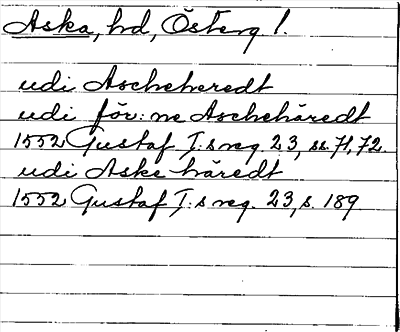 Aska, hd, Österg l.
udi Ascheheredt
udi för: ne Aschehäredt
1552 Gustaf I:s reg. 23, ss. 71, 72.
udi Aske häredt
1552 Gustaf I:s reg. 23, s. 189